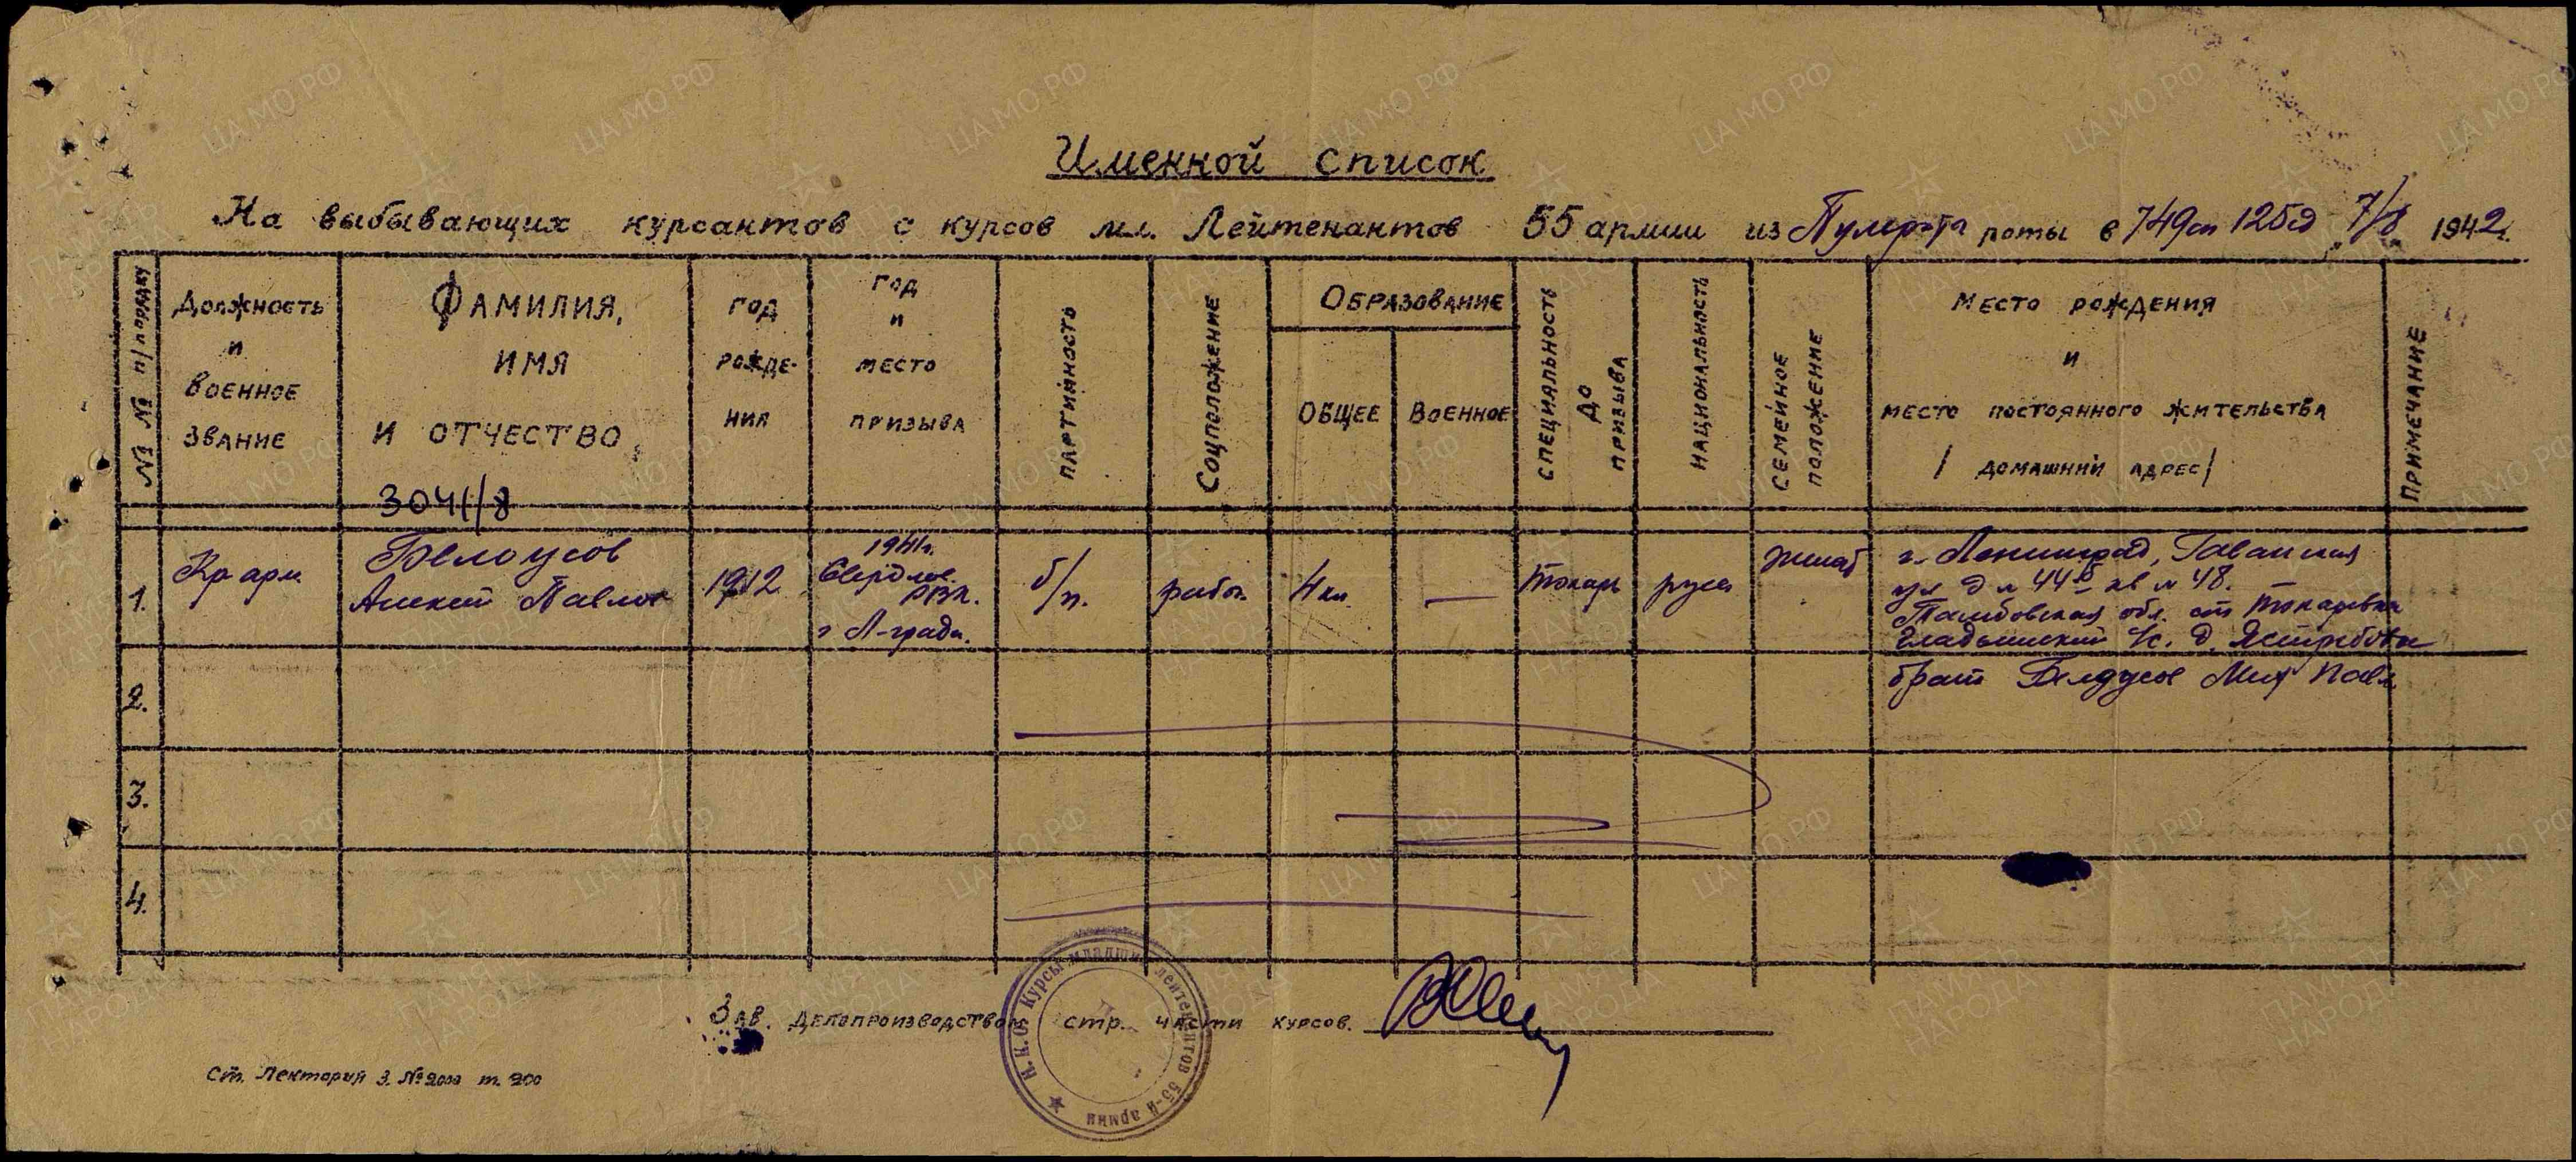 Именной список
На выбывающих курсантов с курсов мл. Лейтенантов 55 армии из Пулерота роты в 749сп 125сд 7/8 1942г.
№№ п/порядку
Должность
и
военное
звание
Фамилия,
имя
и отчество
год
рожде-
ния
год
и
место
призыва
Партийность
Соцположение
Образование
Общее
Военное
Специальность
до
призыва
Национальность
Семейное
положение
Место рождения
и
место постоянного жительства
/ домашний адрес/
Примечание
3041/8
1.
Кр арм
Белоусов
Алексей Павлов
1912
1941г.
Свердлов.
РВК.
г Л-града.
б/п.
рабоч.
4 кл
—
Токарь
русс
женат
г. Ленинград, Гаванская
ул д № 44б кв № 48.
Тамбовская обл. ст Токаревка
Гладышский с/с. д. Ястребовка
2.
брат Белоусов Мих Павл
3.
4.
Зав. Делопроизводством стр. части курсов.
Н.К.О. Курсы младших лейтенантов 55-й армии
Ст. Лектория З. №2000 т. 200
ЦА МО РФ
ПАМЯТЬ
НАРОДА